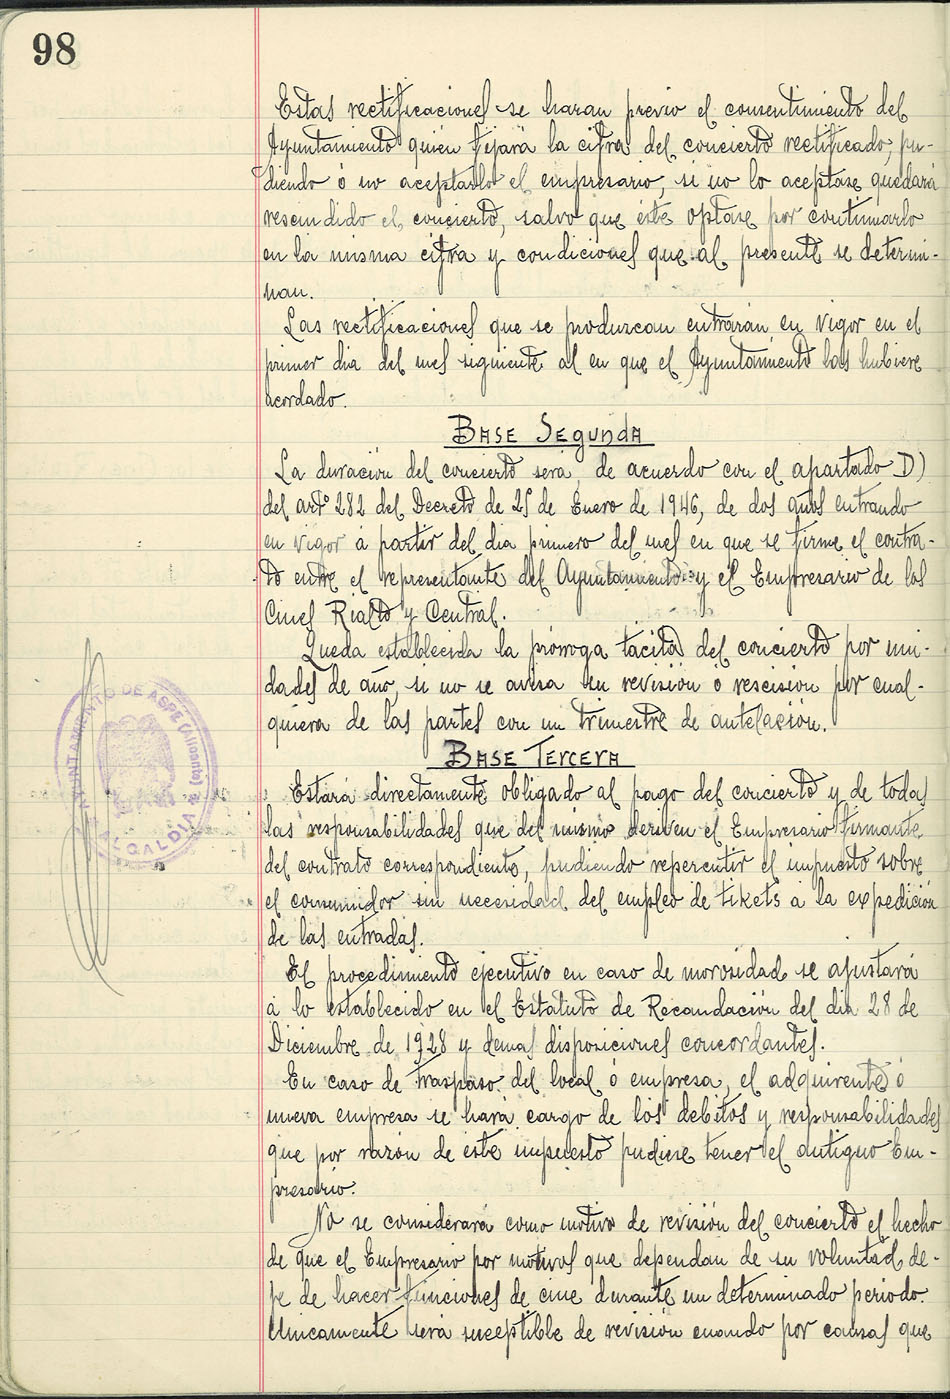 98
Estas rectificaciones se haran previo el consentimiento del
Ayuntamiento quien fijará la cifra del concierto rectificado, pu-
diendo ó no aceptarlo el empresario, si no lo aceptase quedará
rescindido el concierto, salvo que éste optase por continuarlo
en la misma cifra y condiciones que al presente se determi-
nan.
Las rectificaciones que se produzcan entrarán en vigor en el
primer dia del mes siguiente al en que el Ayuntamiento las hubiere
acordado.
Base Segunda
La duración del concierto será, de acuerdo con el apartado D)
del artº 282 del Decreto de 25 de Enero de 1946, de dos años entrando
en vigor á partir del dia primero del mes en que se firme el contra-
to entre el representante del Ayuntamiento y el Empresario de los
Cines Rialto y Central.
Queda establecida la prórroga tacita del concierto por uni-
dades de año, si no se avisa su revisión ó rescisión por cual-
quiera de las partes con un trimestre de antelación.
Base Tercera
Estará directamente obligado al pago del concierto y de todas
las responsabilidades que del mismo deriven el Empresario firmante
del contrato correspondiente, pudiendo repercutir el impuesto sobre
el consumidor sin necesidad del empleo de tikets á la expedición
de las entradas.
El procedimiento ejecutivo en caso de morosidad se ajustará
á lo establecido en el Estatuto de Recaudación del dia 28 de
Diciembre de 1928 y demas disposiciones concordantes.
En caso de traspaso del local ó empresa, el adquirente ó
nueva empresa se hará cargo de los debitos y responsabilidades
que por razón de este impuesto pudiese tener el antiguo Em-
presario.
No se considerará como motivo de revisión del concierto el hecho
de que el Empresario por motivos que dependan de su voluntad de-
je de hacer funciones de cine durante un determinado periodo.
Unicamente será suceptible de revisión cuando por causas que
AYUNTAMIENTO DE ASPE (Alicante)
ALCALDIA